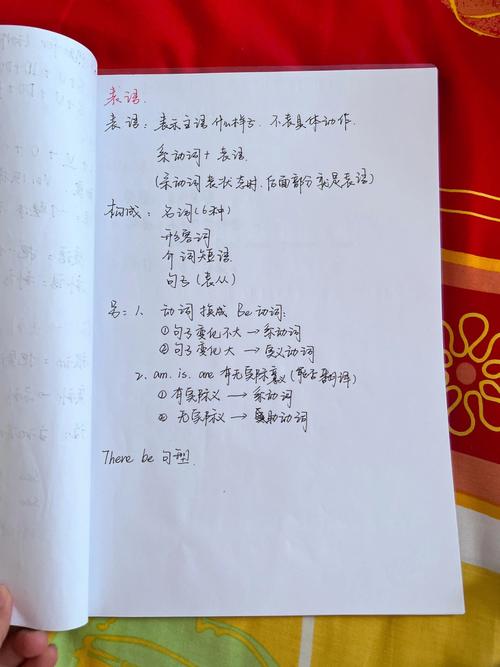 表语.
表语：表示主语什么样子. 不表具体动作.
系动词+表语.
(系动词表状态时.后面部分就是表语)
构成：名词(6种)
形容词
介词短语
句子(表从)
1. 动词换成 Be动词:
①句子变化不大→系动词
②句子变化大→实义动词
2. am. is. are 有无实际意义(能否翻译)
①有实际义→系动词
② 无实际义→助动词
There be 句型.